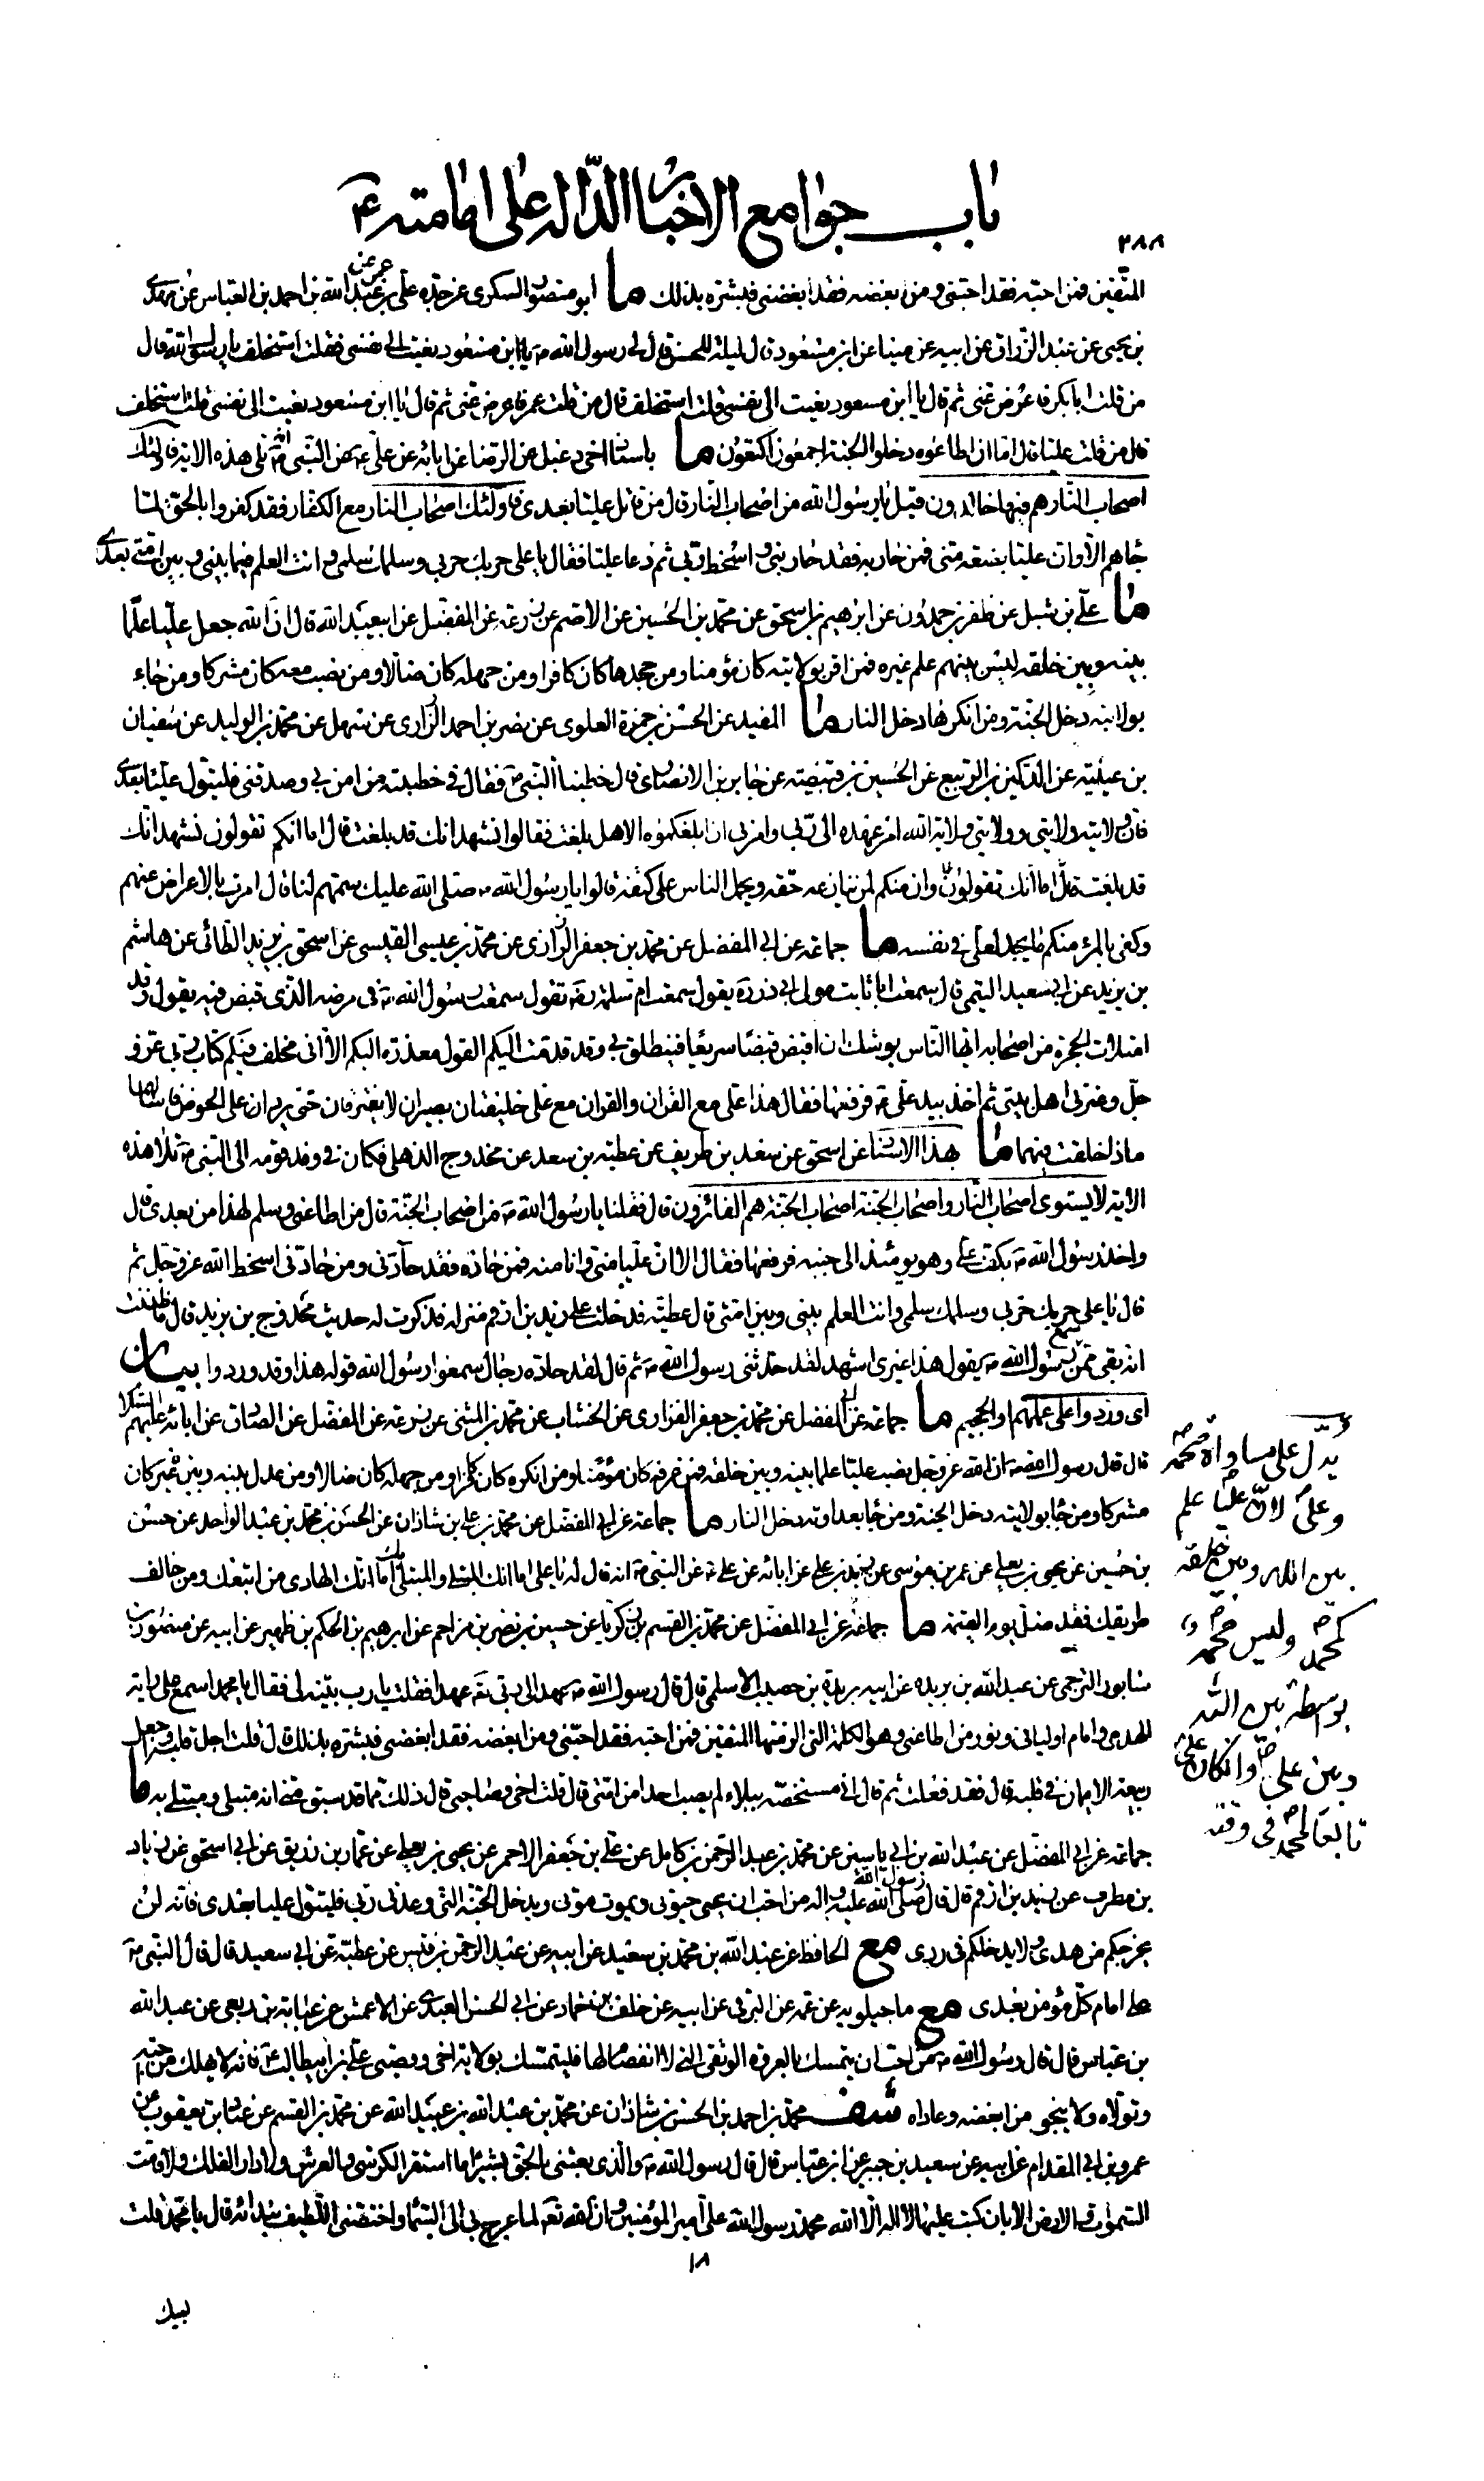 باب جوامع الاخبار الدّالة على امامته ع
٣٨٨
المتّقين فمن احبّه فقد احبّنى ومن ابغضه فقد ابغضنى فبشّره بذلك ما ابو منصور السكرى عن جدّه على بن عمر عن عبد الله بن احمد بن العباس عن مهدى
بن يحيى عن عبد الرزاق عن ابيه عن مينا عن ابن مسعود قال ليلة الجن قال لى رسول الله ص يا ابن مسعود نعيت الى نفسى فقلت استخلف يا رسول الله قال
من قلت ابا بكر فاعرض عنى ثم قال يا ابن مسعود نعيت الى نفسى قلت استخلف قال من قلت عمر فاعرض عنى ثم قال يا ابن مسعود نعيت الى نفسى قلت استخلف
قال من قلت عليّا قال اما ان اطاعوه دخلوا الجنة اجمعون اكتعون ما باسناد اخى دعبل عن الرضا عن ابائه عن على ع عن النبى ص انه تلى هذه الاية فاولئك
اصحاب النار هم فيها خالدون فقيل يا رسول الله من اصحاب النار قال من قاتل عليّا بعدى فاولئك اصحاب النار مع الكفار فقد كفروا بالحق لما
جاءهم الا وان عليّا بضعة منى فمن حاربه فقد حاربنى واسخط ربى ثم دعا عليّا فقال يا على حربك حربى وسلمك سلمى وانت العلم فيما بينى وبين امتى بعدى
ما على بن شبل عن ظفر بن حمدون عن ابرهيم بن اسحق عن محمد بن الحسين عن الاصم عن زرعة عن المفضل عن ابيعبد الله قال ان الله جعل عليّا علما
بينه وبين خلقه ليس بينهم علم غيره فمن اقر بولايته كان مؤمنا ومن جحدها كان كافرا ومن جهله كان ضالا ومن نصب معه كان مشركا ومن جاء
بولايته دخل الجنة ومن انكرها دخل النار ما المفيد عن الحسن بن حمزة العلوى عن نصر بن احمد الرازى عن سهل عن محمد بن الوليد عن سفيان
بن عيينة عن الدكين بن الربيع عن الحسين بن قبيصة عن جابر بن الانصارى قال خطبنا النبى ص فقال فى خطبته من امن بى وصدقنى فليتول عليّا بعدى
فان ولايته ولايتى وولايتى ولاية الله امر عهده الى ربى وامرنى ان ابلغكموه الا هل بلغت فقالوا نشهد انك قد بلغت قال اما انكم تقولون نشهد انك
قد بلغت قال اما انك تقولون وان منكم لمن ينازعه حقه ويحمل الناس على كتفه قالوا يا رسول الله ص صلى الله عليك سمهم لنا قال امرت بالاعراض عنهم
وكفى بالمرء منكم ما يجد لعلى فى نفسه ما جماعة عن ابى المفضل عن محمد بن جعفر الرزاز عن محمد بن عيسى القيسى عن اسحق بن يزيد الطائى عن هاشم
بن يزيد عن ابى سعيد التيمى قال سمعت ابا ثابت مولى ابى ذر ره يقول سمعت ام سلمة رض تقول سمعت رسول الله ص فى مرضه الذى قبض فيه يقول وقد
امتلات الحجرة من اصحابه ايها الناس يوشك ان اقبض قبضا سريعا فينطلق بى وقد قدمت اليكم القول معذرة اليكم الا انى مخلف فيكم كتاب ربى عز و
جل وعترتى اهل بيتى ثم اخذ بيد على ع فرفعها فقال هذا على مع القران والقران مع على خليفتان بصيران لا يفترقان حتى يردان على الحوض فاسئلهما
ماذا خلفت فيهما ما هذا الاسناد عن اسحق عن سعد بن طريف عن عطية بن سعد عن مخدوج الذهلى وكان فى وفد قومه الى النبى ص تلا هذه
الاية لا يستوى اصحاب النار واصحاب الجنة اصحاب الجنة هم الفائزون قال فقلنا يا رسول الله ص من اصحاب الجنة قال من اطاعنى وسلم لهذا من بعدى قال
واخذ رسول الله ص بكف على وهو يومئذ الى جنبه فرفعها فقال الا ان عليّا منى وانا منه فمن حاده فقد حادنى ومن حادنى اسخط الله عز وجل ثم
قال يا على حربك حربى وسلمك سلمى وانت العلم بينى وبين امتى قال عطية فدخلت على زيد بن ارقم منزله فذكرت له حديث مخدوج بن يزيد قال ما ظننت
انه بقى ممن سمع رسول الله ص يقول هذا غيرى اشهد لقد حدثنى رسول الله ص ثم قال لقد حاده رجال سمعوا رسول الله قوله هذا وقد وردوا بيان
اى وردوا على عملهم او الجحيم ما جماعة عن ابى المفضل عن محمد بن جعفر الفزارى عن الخشاب عن محمد بن المثنى عن زرعة عن المفضل عن الصادق عن ابائه عليهم السلام
قال قال رسول الله ص ان الله عز وجل نصب عليّا علما بينه وبين خلقه فمن عرفه كان مؤمنا ومن انكره كان كافرا ومن جهله كان ضالا ومن عدل بينه وبين غيره كان
مشركا ومن جاء بولايته دخل الجنة ومن جاء بعداوته دخل النار ما جماعة عن ابى المفضل عن محمد بن على بن شاذان عن الحسن بن محمد بن عبد الواحد عن حسن
بن حسين عن يحيى بن يعلى عن عمر بن موسى عن زيد بن على عن ابائه عن على ع عن النبى ص انه قال له يا على اما انك المبتلى والمبتلى بك اما انك الهادى من اتبعك ومن خالف
طريقك فقد ضل يوم القيمة ما جماعة عن ابى المفضل عن محمد بن القسم بن زكريا عن حسين بن نصر بن مزاحم عن ابرهيم بن الحكم بن ظهير عن ابيه عن منصور بن
سابور البرجمى عن عبد الله بن بريدة عن ابيه بريدة بن حصيب الاسلمى قال قال رسول الله ص عهد الى ربى تعه عهدا فقلت يا رب بينه لى فقال يا محمد اسمع على راية
الهدى وامام اوليائى ونور من اطاعنى وهو الكلمة التى الزمتها المتقين فمن احبه فقد احبنى ومن ابغضه فقد ابغضنى فبشره بذلك قال قلت اجل قلبه واجعل
ربيعه الايمان فى قلبه قال فقد فعلت ثم قال انى مستخصه ببلاء لم يصب احدا من امتى قال قلت اخى وصاحبى قال ذلك مما قد سبق منى انه مبتلى ومبتلى به ما
جماعة عن ابى المفضل عن عبد الله بن ابى ياسين عن محمد بن عبد الرحمن بن كامل عن على بن جعفر الاحمر عن يحيى بن يعلى عن عمار بن زريق عن ابى اسحق عن زياد
بن مطرف عن زيد بن ارقم قال قال رسول الله صلى الله عليه واله من احب ان يحيى حيوتى ويموت موتى ويدخل الجنة التى وعدنى ربى فليتول عليا بعدى فانه لن
يخرجكم من هدى ولا يدخلكم فى ردى مع الحافظ عن عبد الله بن محمد بن سعيد عن ابيه عن عبد الرحمن بن قيس عن عطية عن ابى سعيد قال قال النبى ص
على امام كل مؤمن بعدى مع ماجيلويه عن عمه عن البرقى عن ابيه عن خلف بن حماد عن ابى الحسن العبدى عن الاعمش عن عباية بن ربعى عن عبد الله
بن عباس قال قال رسول الله ص من احب ان يتمسك بالعروة الوثقى التى لا انفصام لها فليتمسك بولاية اخى ووصيى على بن ابيطالب ع فانه لا يهلك من احبه
وتولاه ولا ينجو من ابغضه وعاداه شف محمد بن احمد بن الحسن بن شاذان عن محمد بن عبد الله بن عبيد الله عن محمد بن القسم عن عباد بن يعقوب عن
عمرو بن ابى المقدام عن ابيه عن سعيد بن جبير عن ابن عباس قال قال رسول الله ص والذى بعثنى بالحق بشيرا ما استقر الكرسى والعرش ولا دار الفلك ولا قامت
السموات والارض الا بان كتب عليها لا اله الا الله محمد رسول الله على امير المؤمنين وان الله تعه لما عرج بى الى السماء واختصنى اللطيف بندائه قال يا محمد قلت
١٨
لبيك
يدلّ على مساواة محمّد ص
وعلى لانّ عليّا علم
بين الله وبين خلقه
كمحمد ص وليس محمد ص
بوسطة بين الله
وبين على ص وان كان على
تابعا لمحمد ص فى وقته